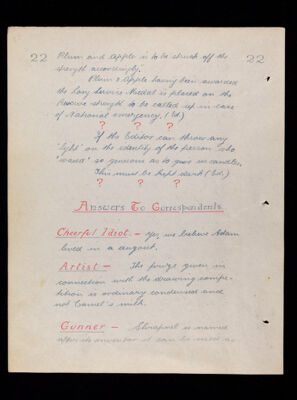 22 Plum and Apple is to be struck off the 22
strength accordingly."
Plum & Apple having been awarded
the Long Service Medal is placed on the
Reserve strength to be called up in case
of National emergency. (Ed.)
? ? ?
If the Editor can throw any
'light' on the identity of the person who
'waxed' so generous as to give us candles.
This must be kept dark (Ed.)
? ? ?
Answers To Correspondents.
Cheerful Idiot. — Yes, we believe Adam
lived in a dugout.
Artist — The prize given in
connection with the drawing compe-
tition is ordinary condensed and
not Camel's milk.
Gunner — Shrapnel is named
after its inventor it can be used as